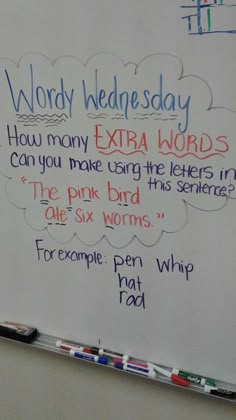 Wordy Wednesday
How many EXTRA WORDS
can you make using the letters in
this sentence?
"The pink bird
ate six worms."
For example: pen whip
hat
rad